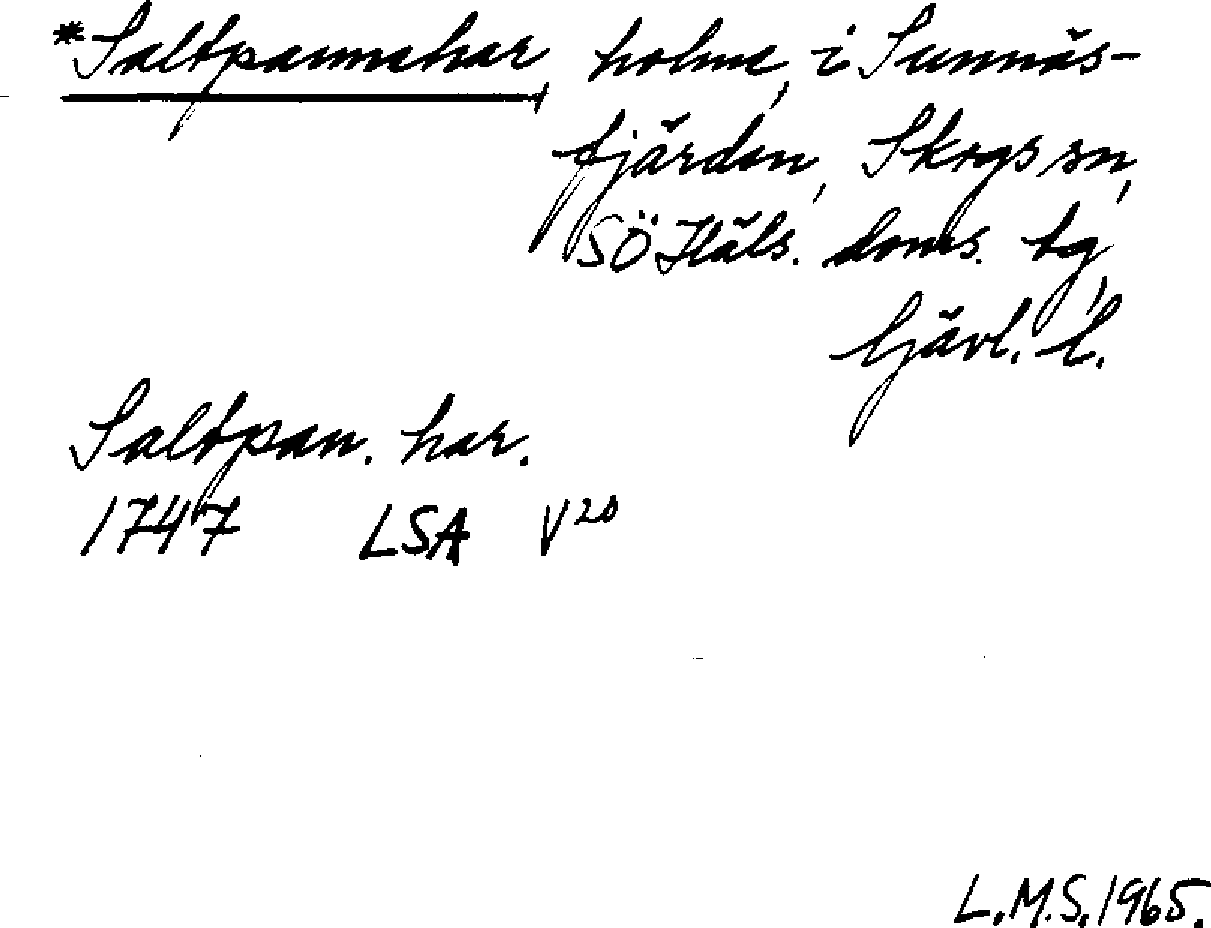 *Saltpannehar, holme, i Sunnäs-
fjärden, Skogs sn,
SÖ Häls. doms. tg,
Gävl. l.
Saltpan. har.
1747 LSA V20
L.M.S. 1965.